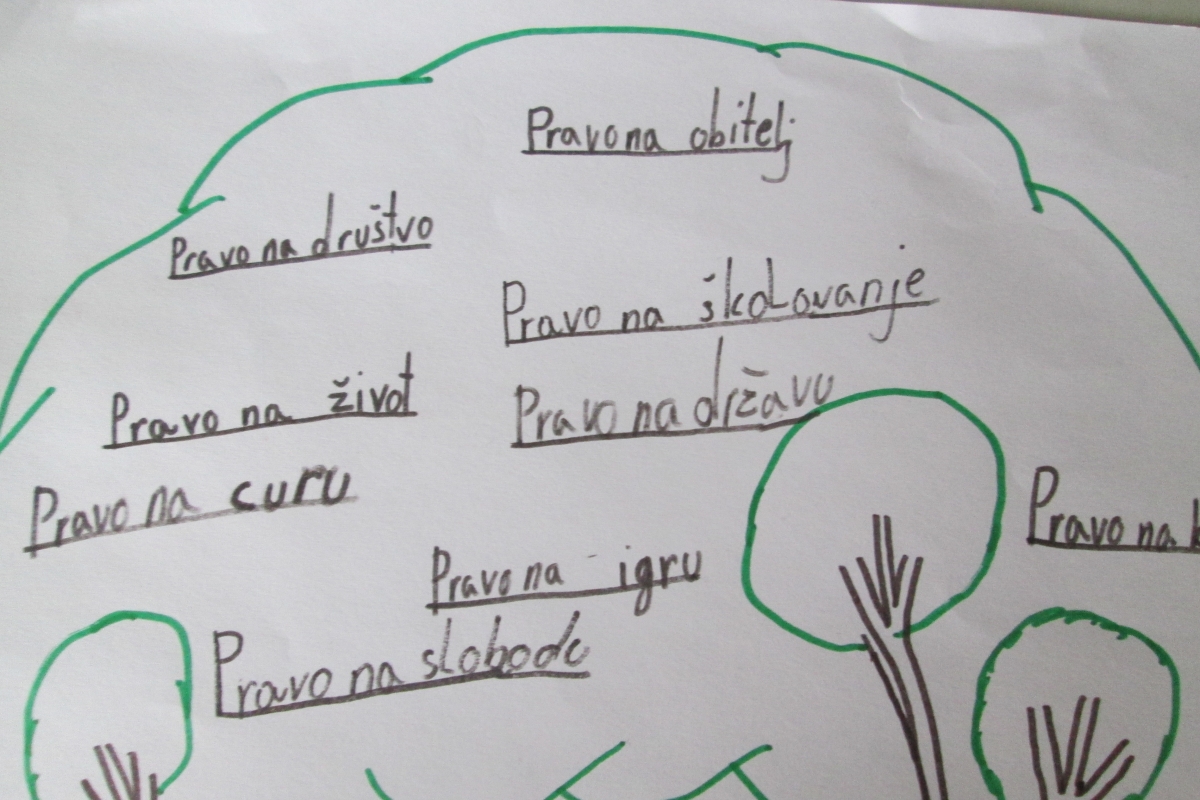 Pravo na obitelj
Pravo na društvo
Pravo na školovanje
Pravo na život
Pravo na državu
Pravo na curu
Pravo na
Pravo na igru
Pravo na